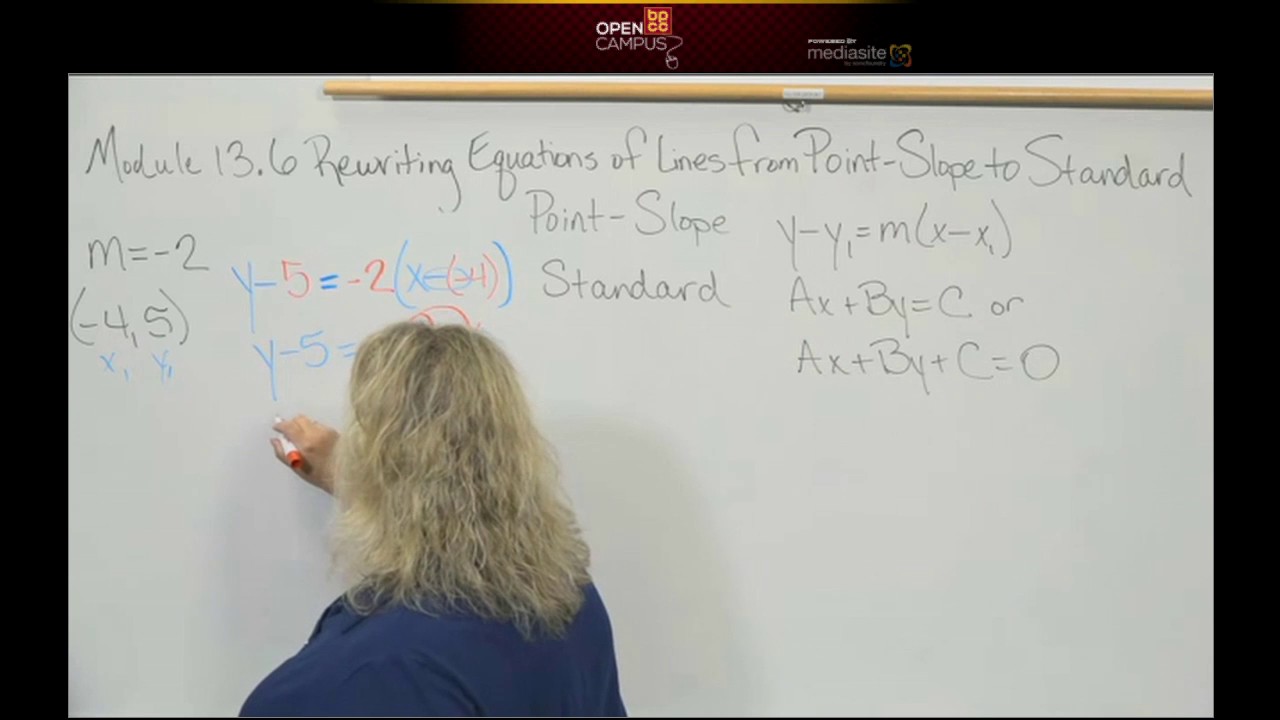 OPEN bpcc
CAMPUS
POWERED BY
mediasite
by sonicfoundry
Module 13.6 Rewriting Equations of Lines from Point-Slope to Standard
Point-Slope y-y₁=m(x-x₁)
m=-2
y-5=-2(x-(-4))
Standard Ax+By=C or
(-4,5)
x₁ y₁
y-5=
Ax+By+C=0